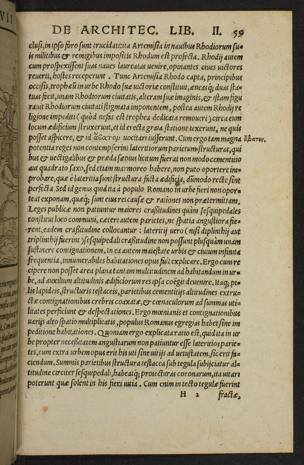 DE ARCHITEC. LIB. II. 59
clusi, in ipso foro sunt trucidati. ita Artemisia in nauibus Rhodiorum su-
is militibus & remigibus impositis Rhodum est profecta. Rhodij autem
cum prospexissent suas naues laureatas venire, opinantes ciues victores
reuerti, hostes receperunt. Tunc Artemisia Rhodo capta, principibus
occisis, trophæum in vrbe Rhodo suæ victoriæ constituit, æneasq; duas sta-
tuas fecit, vnam Rhodiorum ciuitatis, alteram suæ imaginis, & istam figu
rauit Rhodiorum ciuitati stigmata imponentem, postea autem Rhodij re
ligione impediti (quòd nefas est trophæa dedicata remoueri) circa eum
locum ædificium struxerunt, et id erecta graia statione texerunt, ne quis
posset aspicere, & id ἄβατον vocitari iusserunt. Cum ergo tam magna
potentia reges non contempserint lateritiorum parietum structuras, qui
bus & vectigalibus & præda sæpius licitum fuerat non modo cæmentitio
aut quadrato saxo, sed etiam marmoreo habere, non puto oportere im-
probare, quæ è lateritia sunt structura facta ædificia, dummodo rectè sint
perfecta. Sed id genus quid ita à populo Romano in vrbe fieri non opor-
teat exponam, quæq; sunt eius rei causæ & rationes non prætermittam.
Leges publicæ non patiuntur maiores crassitudines quàm sesquipedales
constitui loco communi, cæteri autem parietes, ne spatia angustiora fie-
rent, eadem crassitudine collocantur: lateritij uero (nisi diplinthij aut
triplinthij fuerint) sesquipedali crassitudine non possunt plusquàm unam
sustinere contignationem, in ea autem maiestate urbis & ciuium infinita
frequentia, innumerabiles habitationes opus fuit explicare. Ergo cum re
cipere non posset area planata tantam multitudinem ad habitandum in ur-
be, ad auxilium altitudinis ædificiorum res ipsa coëgit deuenire. Itaq; pi-
lis lapideis, structuris testaceis, parietibus cæmentitijs altitudines extru-
ctæ contignationibus crebris coaxatæ, & cœnaculorum ad summas uti-
litates perficiunt & despectationes. Ergo mœnianis et contignationibus
varijs alto spatio multiplicatis, populus Romanus egregias habet sine im
peditione habitationes. Quoniam ergo explicata ratio est, quid ita in ur
be propter necessitatem angustiarum non patiuntur esse lateritios parie-
tes, cum extra urbem opus erit his uti sine uitijs ad uetustatem, sic erit fa-
ciendum. Summis parietibus structura testacea sub tegula subijciatur al-
titudine circiter sesquipedali, habeatq; proiecturas coronarum, ita vitari
poterunt quæ solent in his fieri uitia. Cum enim in tecto tegulæ fuerint
H 2 fractæ,